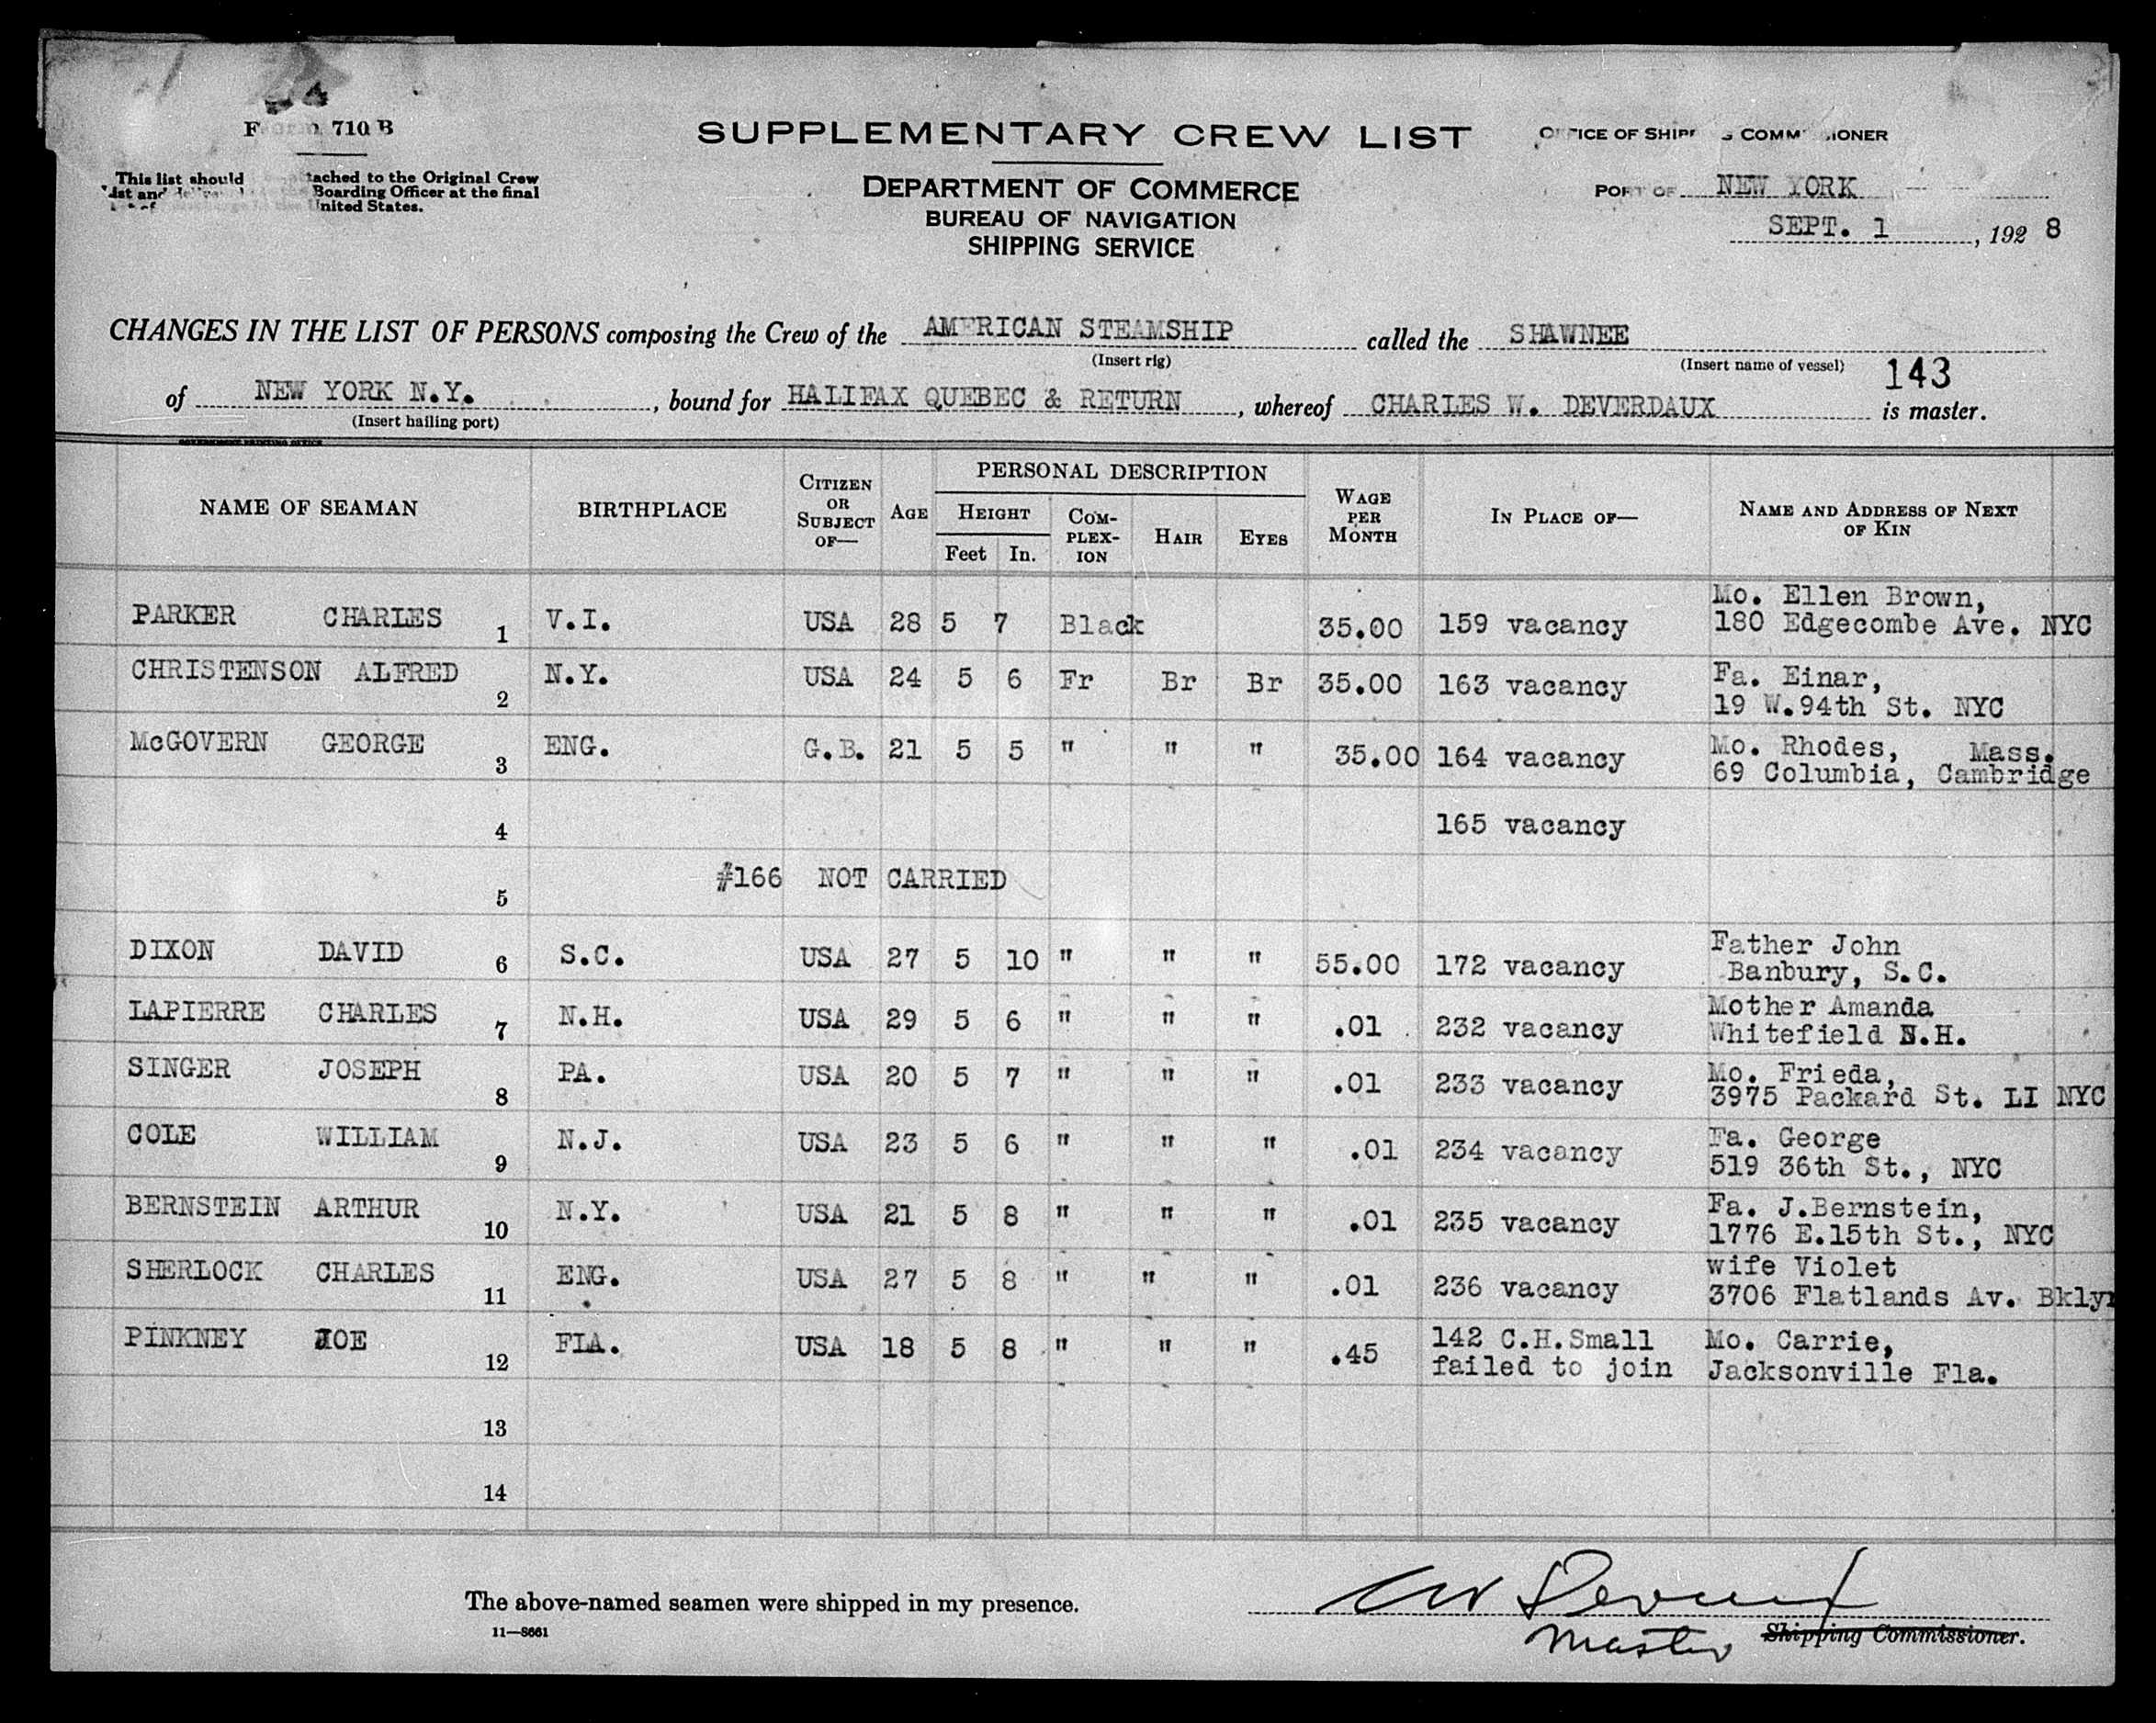 Form 710 B
SUPPLEMENTARY CREW LIST
DEPARTMENT OF COMMERCE
BUREAU OF NAVIGATION
SHIPPING SERVICE
This list should tached to the Original Crew
List and Boarding Officer at the final
United States.
OFFICE OF SHIPPING COMMISSIONER
PORT OF NEW YORK
SEPT. 1, 1928
CHANGES IN THE LIST OF PERSONS composing the Crew of the AMERICAN STEAMSHIP called the SHAWNEE
(Insert rig) (Insert name of vessel) 143
of NEW YORK N.Y., bound for HALIFAX QUEBEC & RETURN, whereof CHARLES W. DEVERDAUX is master.
(Insert hailing port)
GOVERNMENT PRINTING OFFICE
NAME OF SEAMAN BIRTHPLACE CITIZEN OR SUBJECT OF— AGE PERSONAL DESCRIPTION HEIGHT Feet In. COMPLEXION HAIR EYES WAGE PER MONTH IN PLACE OF— NAME AND ADDRESS OF NEXT OF KIN
PARKER CHARLES 1 V.I. USA 28 5 7 Black 35.00 159 vacancy Mo. Ellen Brown,
180 Edgecombe Ave. NYC
CHRISTENSON ALFRED 2 N.Y. USA 24 5 6 Fr Br Br 35.00 163 vacancy Fa. Einar,
19 W.94th St. NYC
McGOVERN GEORGE 3 ENG. G.B. 21 5 5 " " " 35.00 164 vacancy Mo. Rhodes, Mass.
69 Columbia, Cambridge
4 165 vacancy
5 #166 NOT CARRIED
DIXON DAVID 6 S.C. USA 27 5 10 " " " 55.00 172 vacancy Father John
Banbury, S.C.
LAPIERRE CHARLES 7 N.H. USA 29 5 6 " " " .01 232 vacancy Mother Amanda
Whitefield N.H.
SINGER JOSEPH 8 PA. USA 20 5 7 " " " .01 233 vacancy Mo. Frieda,
3975 Packard St. LI NYC
COLE WILLIAM 9 N.J. USA 23 5 6 " " " .01 234 vacancy Fa. George
519 36th St., NYC
BERNSTEIN ARTHUR 10 N.Y. USA 21 5 8 " " " .01 235 vacancy Fa. J.Bernstein,
1776 E.15th St., NYC
SHERLOCK CHARLES 11 ENG. USA 27 5 8 " " " .01 236 vacancy wife Violet
3706 Flatlands Av. Bklyn
PINKNEY JOE 12 FLA. USA 18 5 8 " " " .45 142 C.H.Small Mo. Carrie,
failed to join Jacksonville Fla.
13
14
The above-named seamen were shipped in my presence.
Master Shipping Commissioner.
11—8661